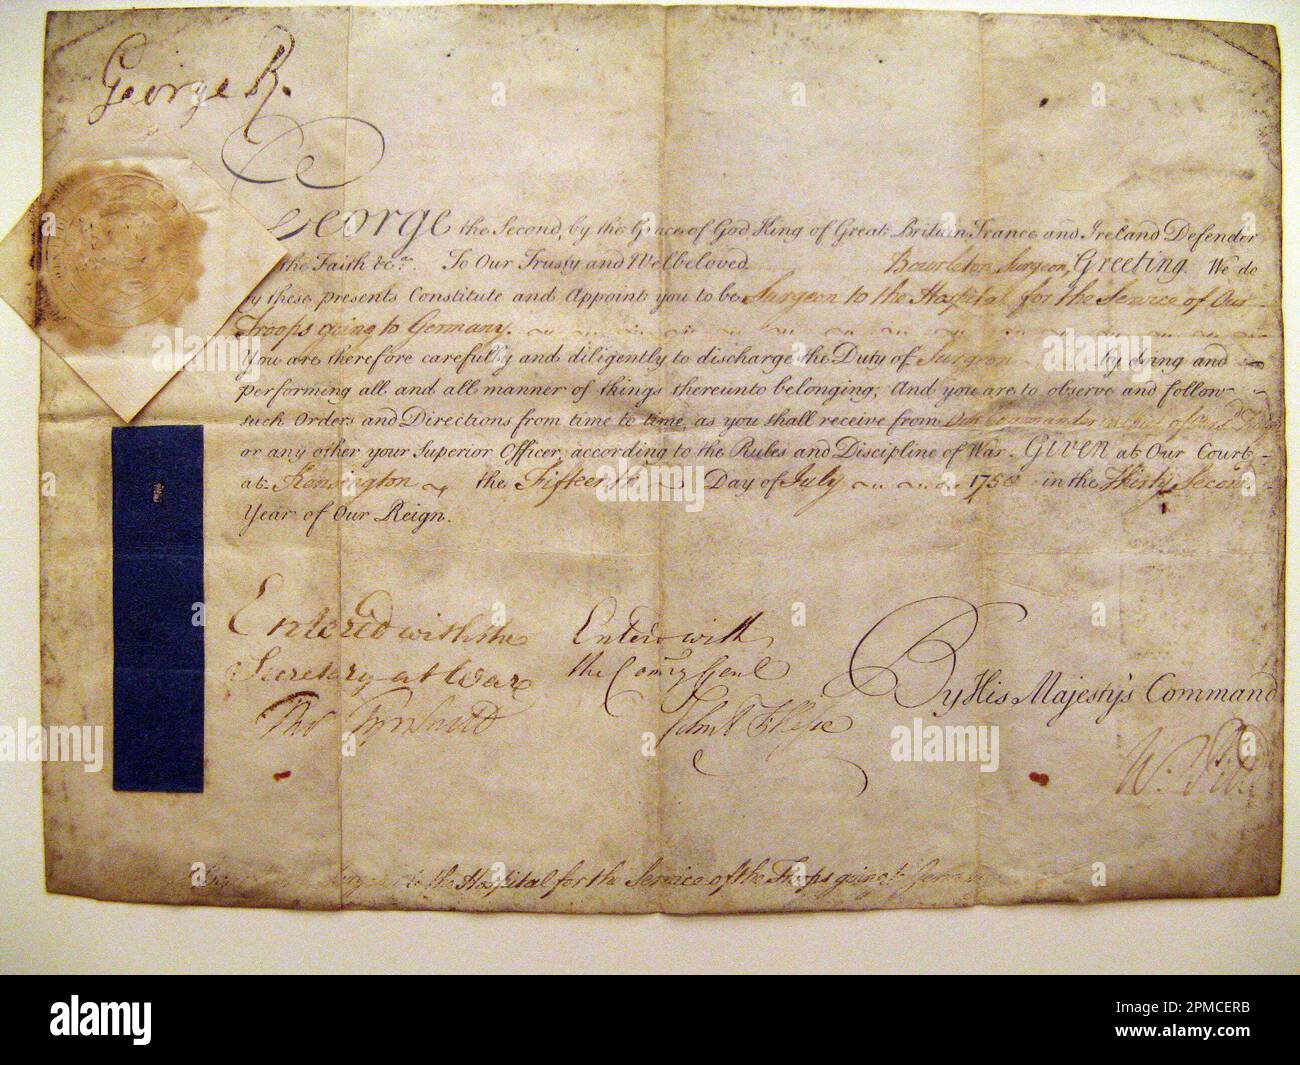 George R.
George the Second, by the Grace of God King of Great Britain France and Ireland Defender
the Faith &c. To Our Trusty and Welbeloved Surgeon, Greeting. We do
by these presents Constitute and Appoint you to be Surgeon to the Hospital for the Service of Our
Troops going to Germany.
You are therefore carefully and diligently to discharge the Duty of Surgeon by doing and
performing all and all manner of things thereunto belonging; And you are to observe and follow
such Orders and Directions from time to time, as you shall receive from Our Commander in chief of our
or any other your Superior Officer, according to the Rules and Discipline of War. GIVEN at Our Court
at Kensington the Fifteenth Day of July 175 in the Thirty Second
Year of Our Reign.
Entered with the
Secretary at War
Tho Tyrwhitt
Enter'd with
the Com̃y Genl
By His Majesty's Command
W. Pitt
to the Hospital for the Service of the Troops going to
alamy
Image ID: 2PMCERB
www.alamy.com